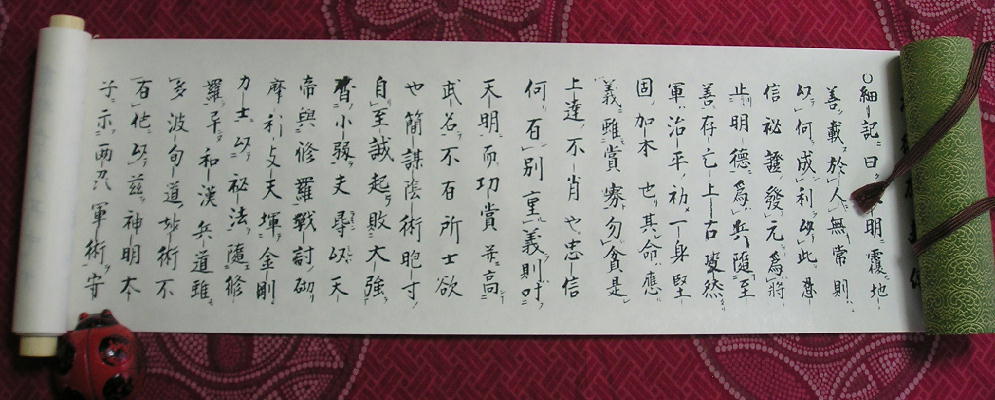 ○細記曰明覆地
善載於人無常則
以何成利欲此意
信祕證發元為將
止明德為兵隨至
善存亡上古質然
軍治平初一身堅
固加本也其命應
義雖賞寡勿貪是
上達不肖也忠信
何石別重義則付
天明而功賞并高
武名不有所士欲
也簡謀陰術胞寸
自至誠起敗大強
小弱夫尋以天
帝與修羅戰討砌
摩利支天渾金剛
力士以祕法隨修
羅子和漢兵道雖
多波旬道妙術不
有他以茲神明太
子示兩忍軍術守